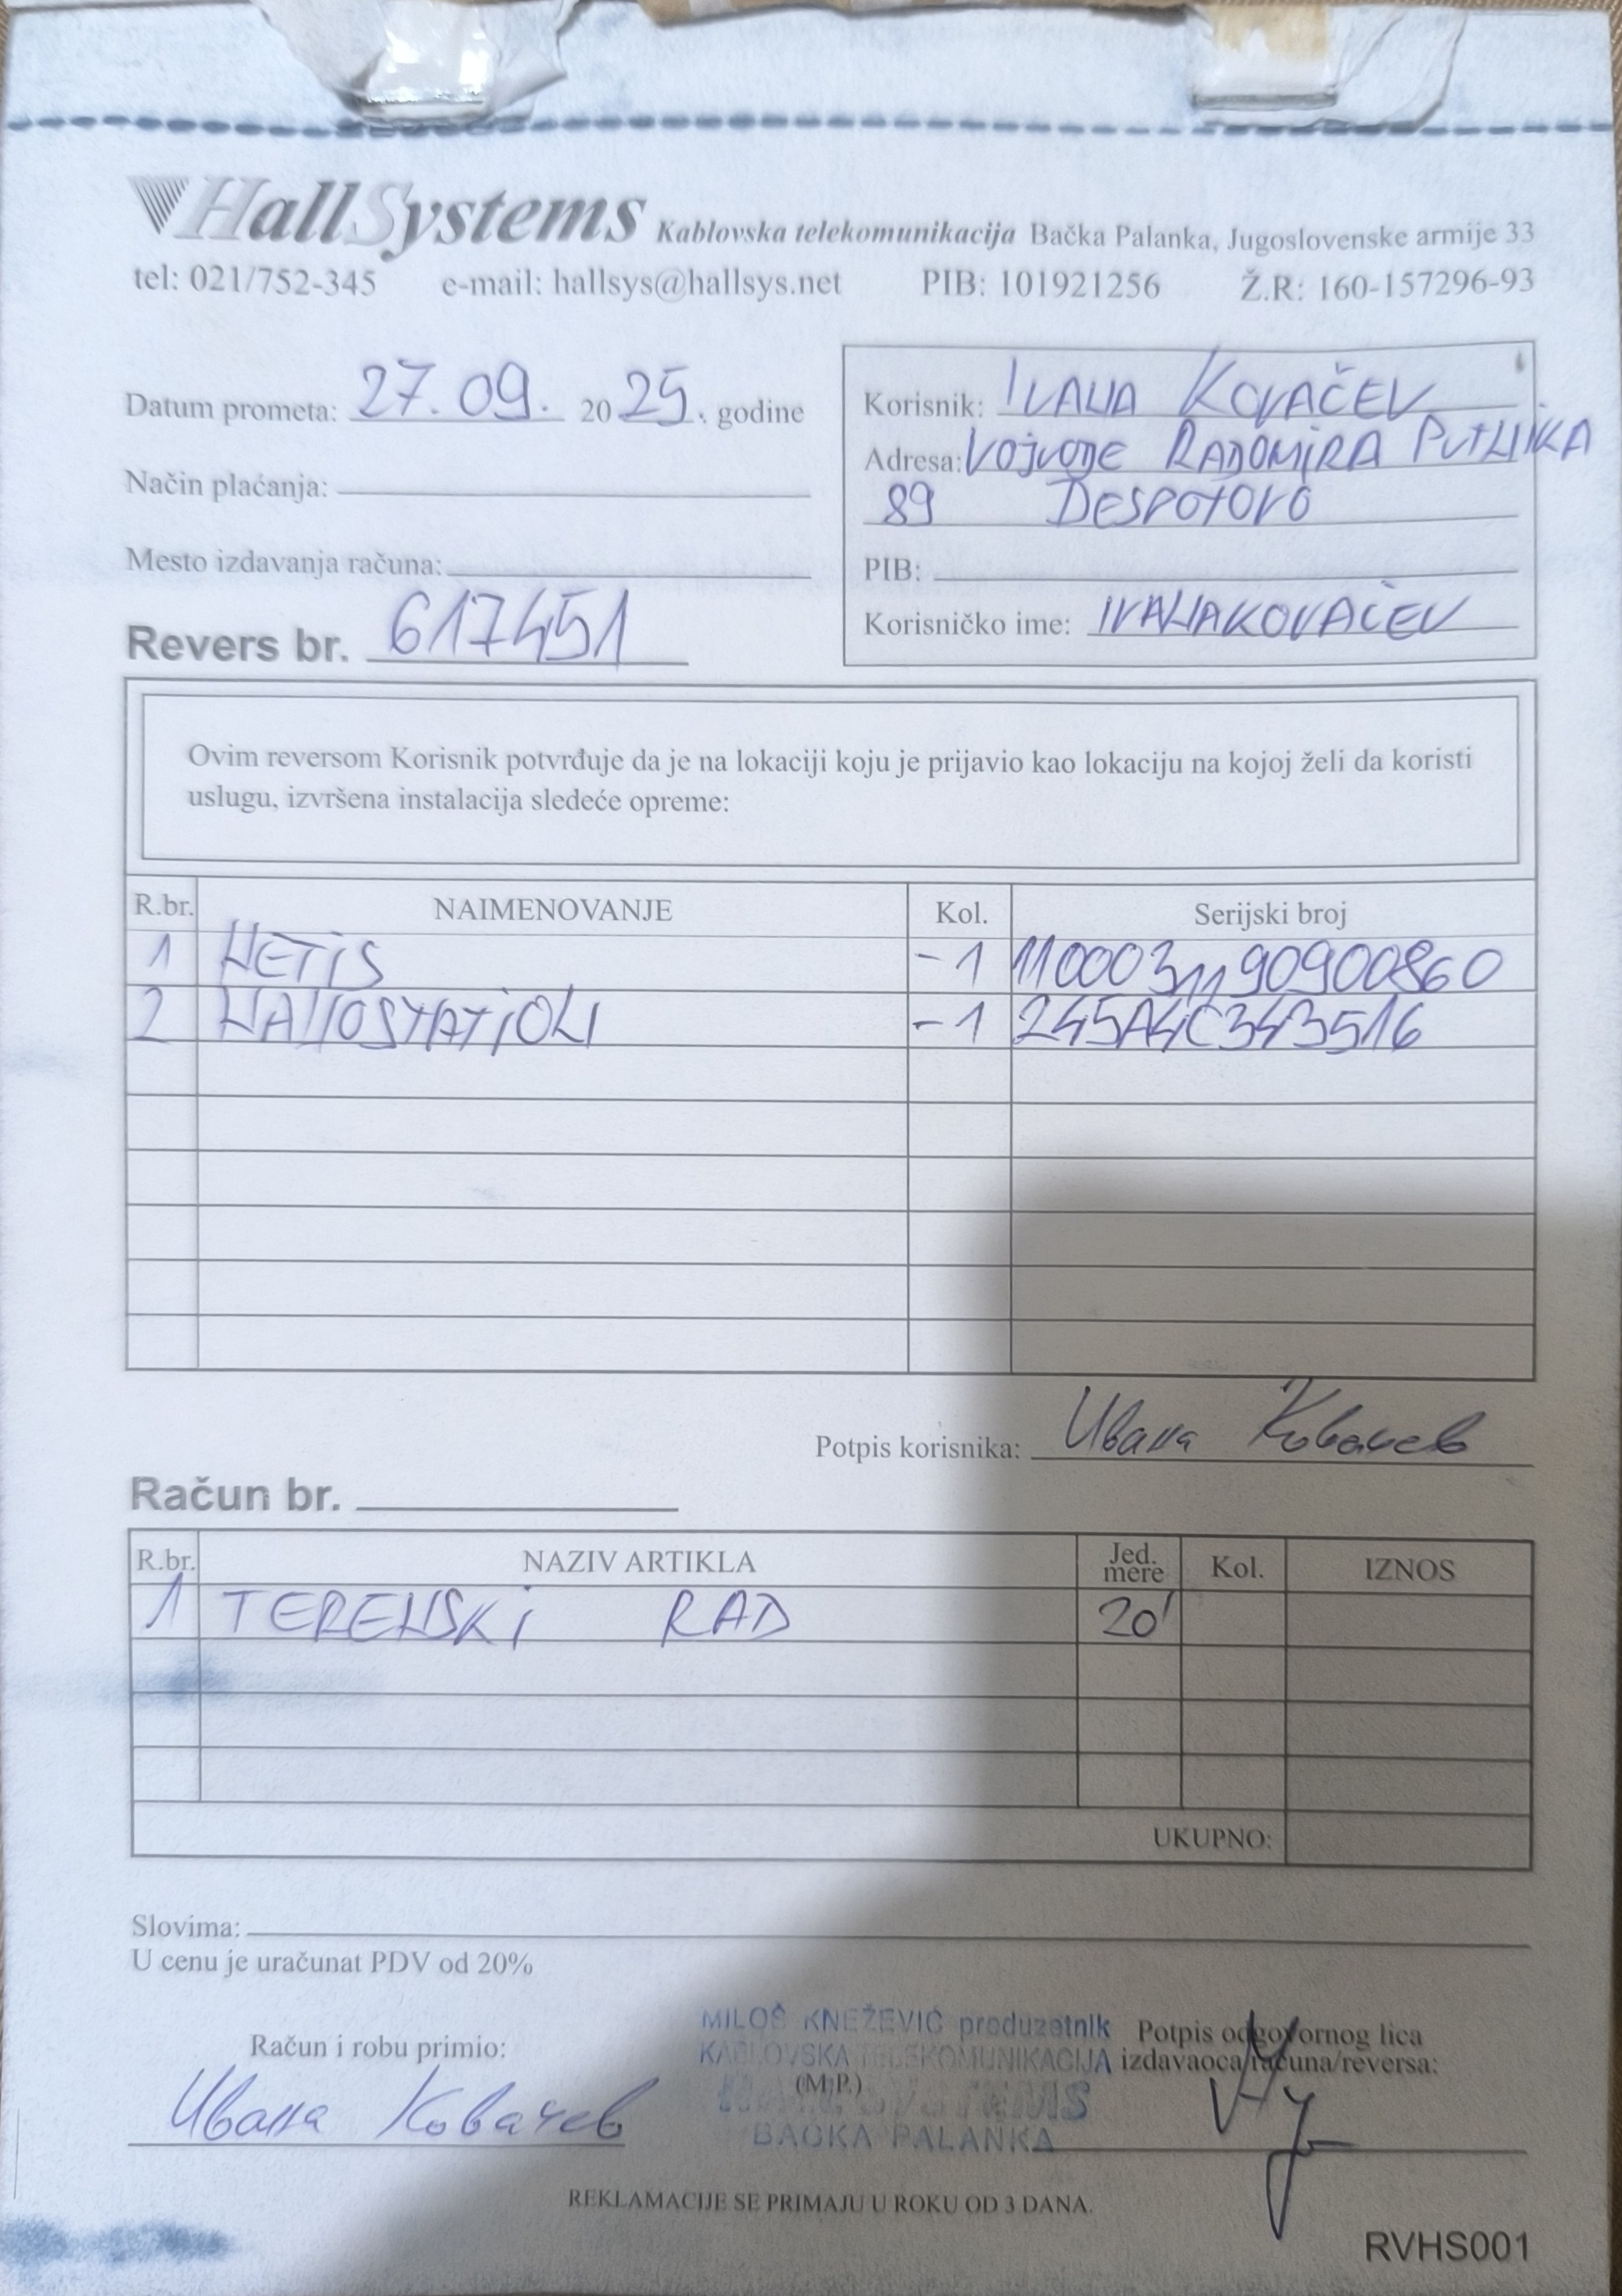 HallSystems Kablovska telekomunikacija Bačka Palanka, Jugoslovenske armije 33
tel: 021/752-345 e-mail: hallsys@hallsys.net PIB: 101921256 Ž.R: 160-157296-93
Datum prometa: 27.09. 2025. godine
Način plaćanja:
Mesto izdavanja računa:
Revers br. 617451
Korisnik: IVANA KOVAČEV
Adresa: VOJVODE RADOMIRA PUTNIKA
89 DESPOTOVO
PIB:
Korisničko ime: IVANAKOVACEV
Ovim reversom Korisnik potvrđuje da je na lokaciji koju je prijavio kao lokaciju na kojoj želi da koristi
uslugu, izvršena instalacija sledeće opreme:
R.br. NAIMENOVANJE Kol. Serijski broj
1 NETIS -1 1100031190900860
2 NANOSTATION -1 245A4C343516
Potpis korisnika: Ивана Ковачев
Račun br.
R.br. NAZIV ARTIKLA Jed. mere Kol. IZNOS
1 TERENSKI RAD 20'
UKUPNO:
Slovima:
U cenu je uračunat PDV od 20%
Račun i robu primio:
Ивана Ковачев
MILOŠ KNEŽEVIĆ preduzetnik
KABLOVSKA TELEKOMUNIKACIJA
(M.P.)
HALL SYSTEMS
BAČKA PALANKA
Potpis odgovornog lica
izdavaoca računa/reversa:
REKLAMACIJE SE PRIMAJU U ROKU OD 3 DANA.
RVHS001